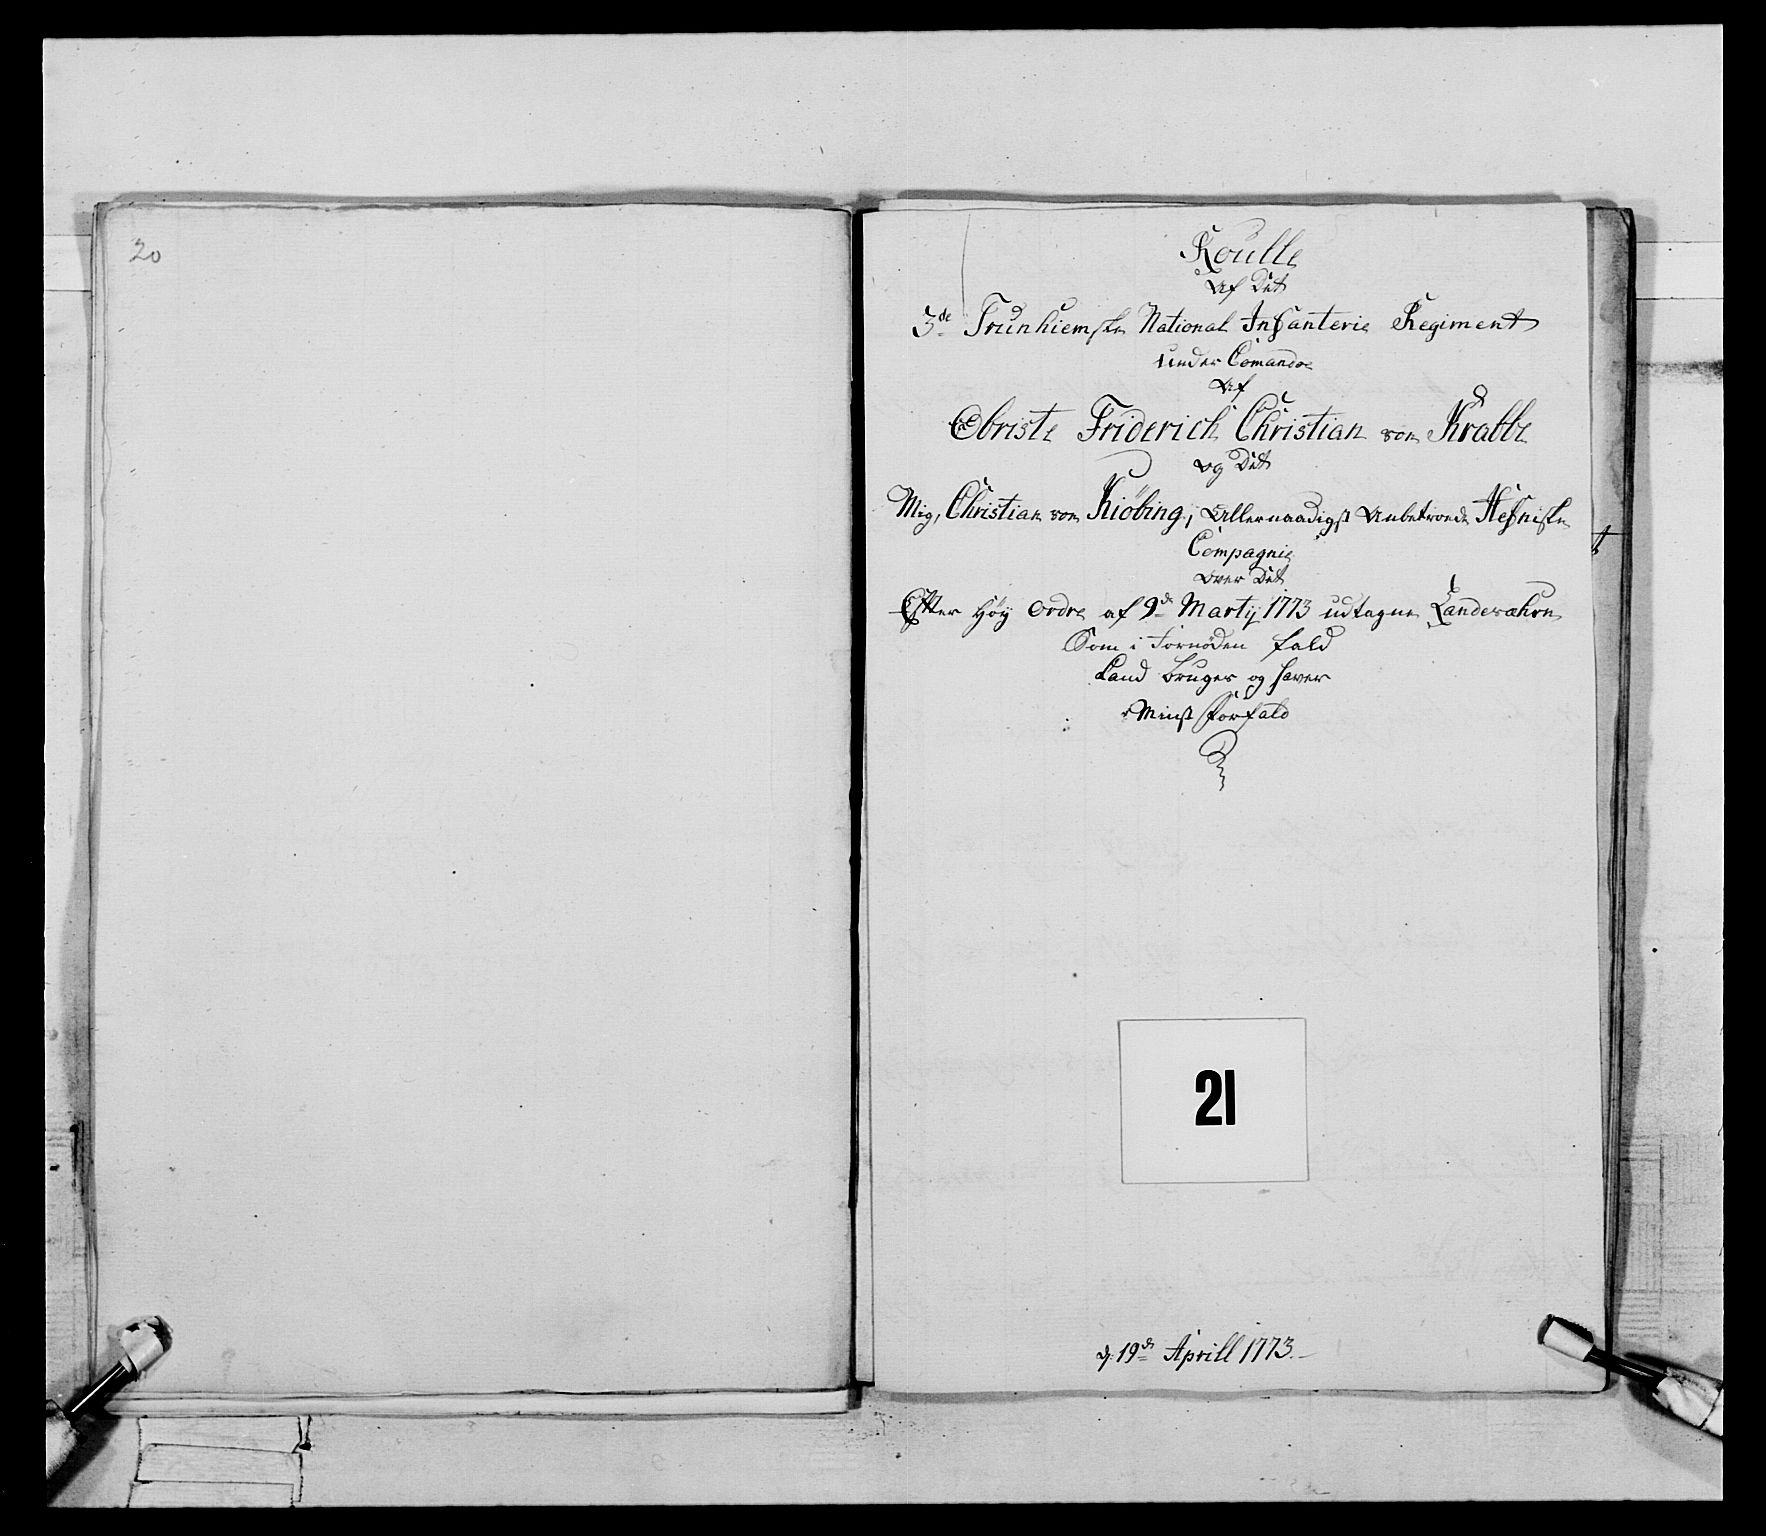 20
Roulle
Af Det
3de Trunhiemske National Infanterie Regiment
under Comando
Af
Obriste Friderich Christian von Krabbe
og Det
Mig, Christian von Kiöbing, Allernaadigst Anbetroede Hefniske
Compagnie
over Det
Efter Høy ordre af 9de Martij 1773 udtagne Landeværn
Som i Fornøden fald
Land bruger og haver
Minst Forfald
21
d: 19de Aprill 1773.